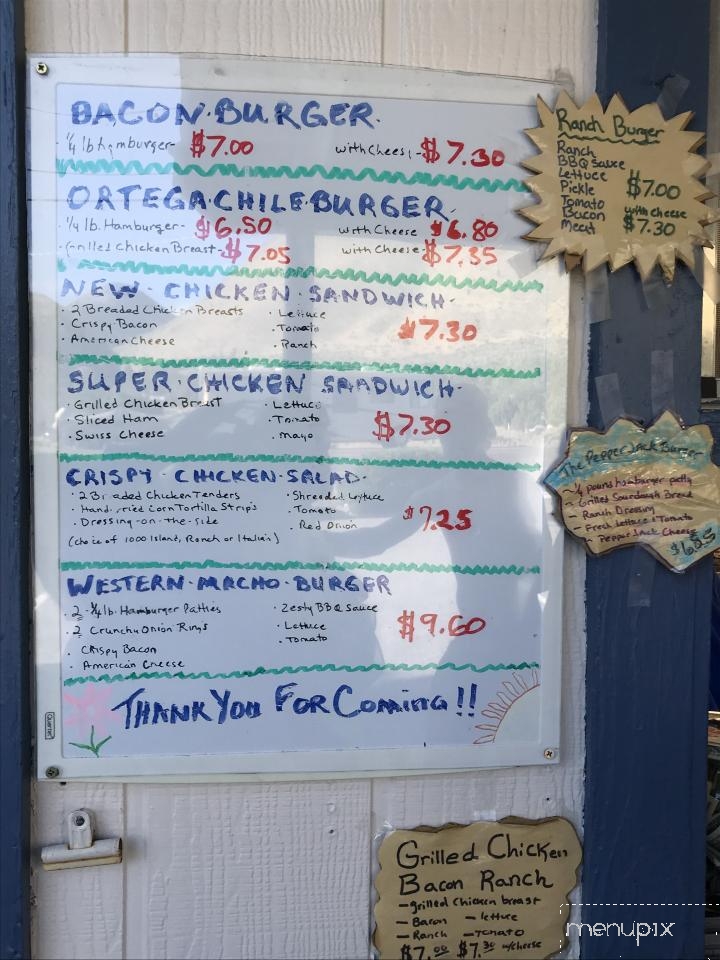 BACON·BURGER·
·¼ lb hamburger- $7.00 with Cheese-$7.30
ORTEGA·CHILE·BURGER·
·¼ lb. Hamburger- $6.50 with Cheese $6.80
·Grilled Chicken Breast-$7.05 with Cheese-$7.35
NEW· CHICKEN· SANDWICH·
· 2 Breaded Chicken Breasts · Lettuce
· Crispy Bacon · Tomato $7.30
· American Cheese · Ranch
SUPER· CHICKEN SAADWICH·
· Grilled Chicken Breast · Lettuce
· Sliced Ham · Tomato $7.30
· Swiss Cheese · Mayo
CRISPY· CHICKEN·SALAD·
· 2 Breaded Chicken Tenders · Shredded Lettuce
· Hand-fried Corn Tortilla Strips · Tomato
· Dressing-on-the-side · Red Onion $7.25
(choice of 1000 Island, Ranch or Italian)
WESTERN·MACHO·BURGER
· 2-¼ lb. Hamburger Patties · Zesty BBQ Sauce
· 2 Crunchy Onion Rings · Lettuce $9.60
· Crispy Bacon · Tomato
· American Cheese
THANK YOU FOR Coming!!
Quartet
Ranch Burger
Ranch
BBQ Sauce
Lettuce
Pickle $7.00
Tomato
Bacon with cheese
Meat $7.30
The Pepper Jack Burger
~¼ pound hamburger patty
~ Grilled Sourdough Bread
~ Ranch Dressing
~ Fresh lettuce & Tomato
~ Pepper Jack Cheese
$6.85
Grilled Chicken
Bacon Ranch
- grilled Chicken breast
- Bacon - lettuce
- Ranch - Tomato
$7.00 $7.30 w/cheese
menupix